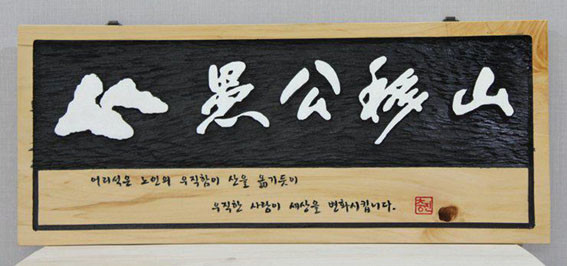 愚公移山
어리석은 노인의 우직함이 산을 옮기듯이
우직한 사람이 세상을 변화시킵니다.